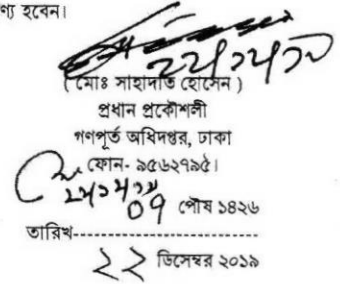 ণ্য হবেন।
২২/১২/১৯
( মোঃ সাহাদাত হোসেন )
প্রধান প্রকৌশলী
গণপূর্ত অধিদপ্তর, ঢাকা
ফোন- ৯৫৬২৭৯৫।
০৭ পৌষ ১৪২৬
তারিখ-----------------------
২২ ডিসেম্বর ২০১৯